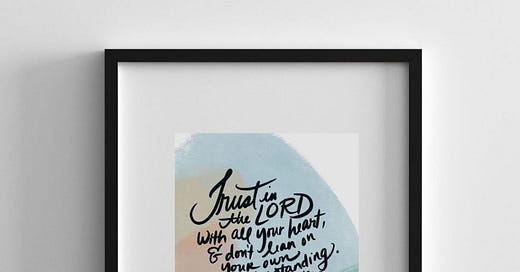 Trust in
the LORD
with all your heart,
& don't lean on
your own
standing.